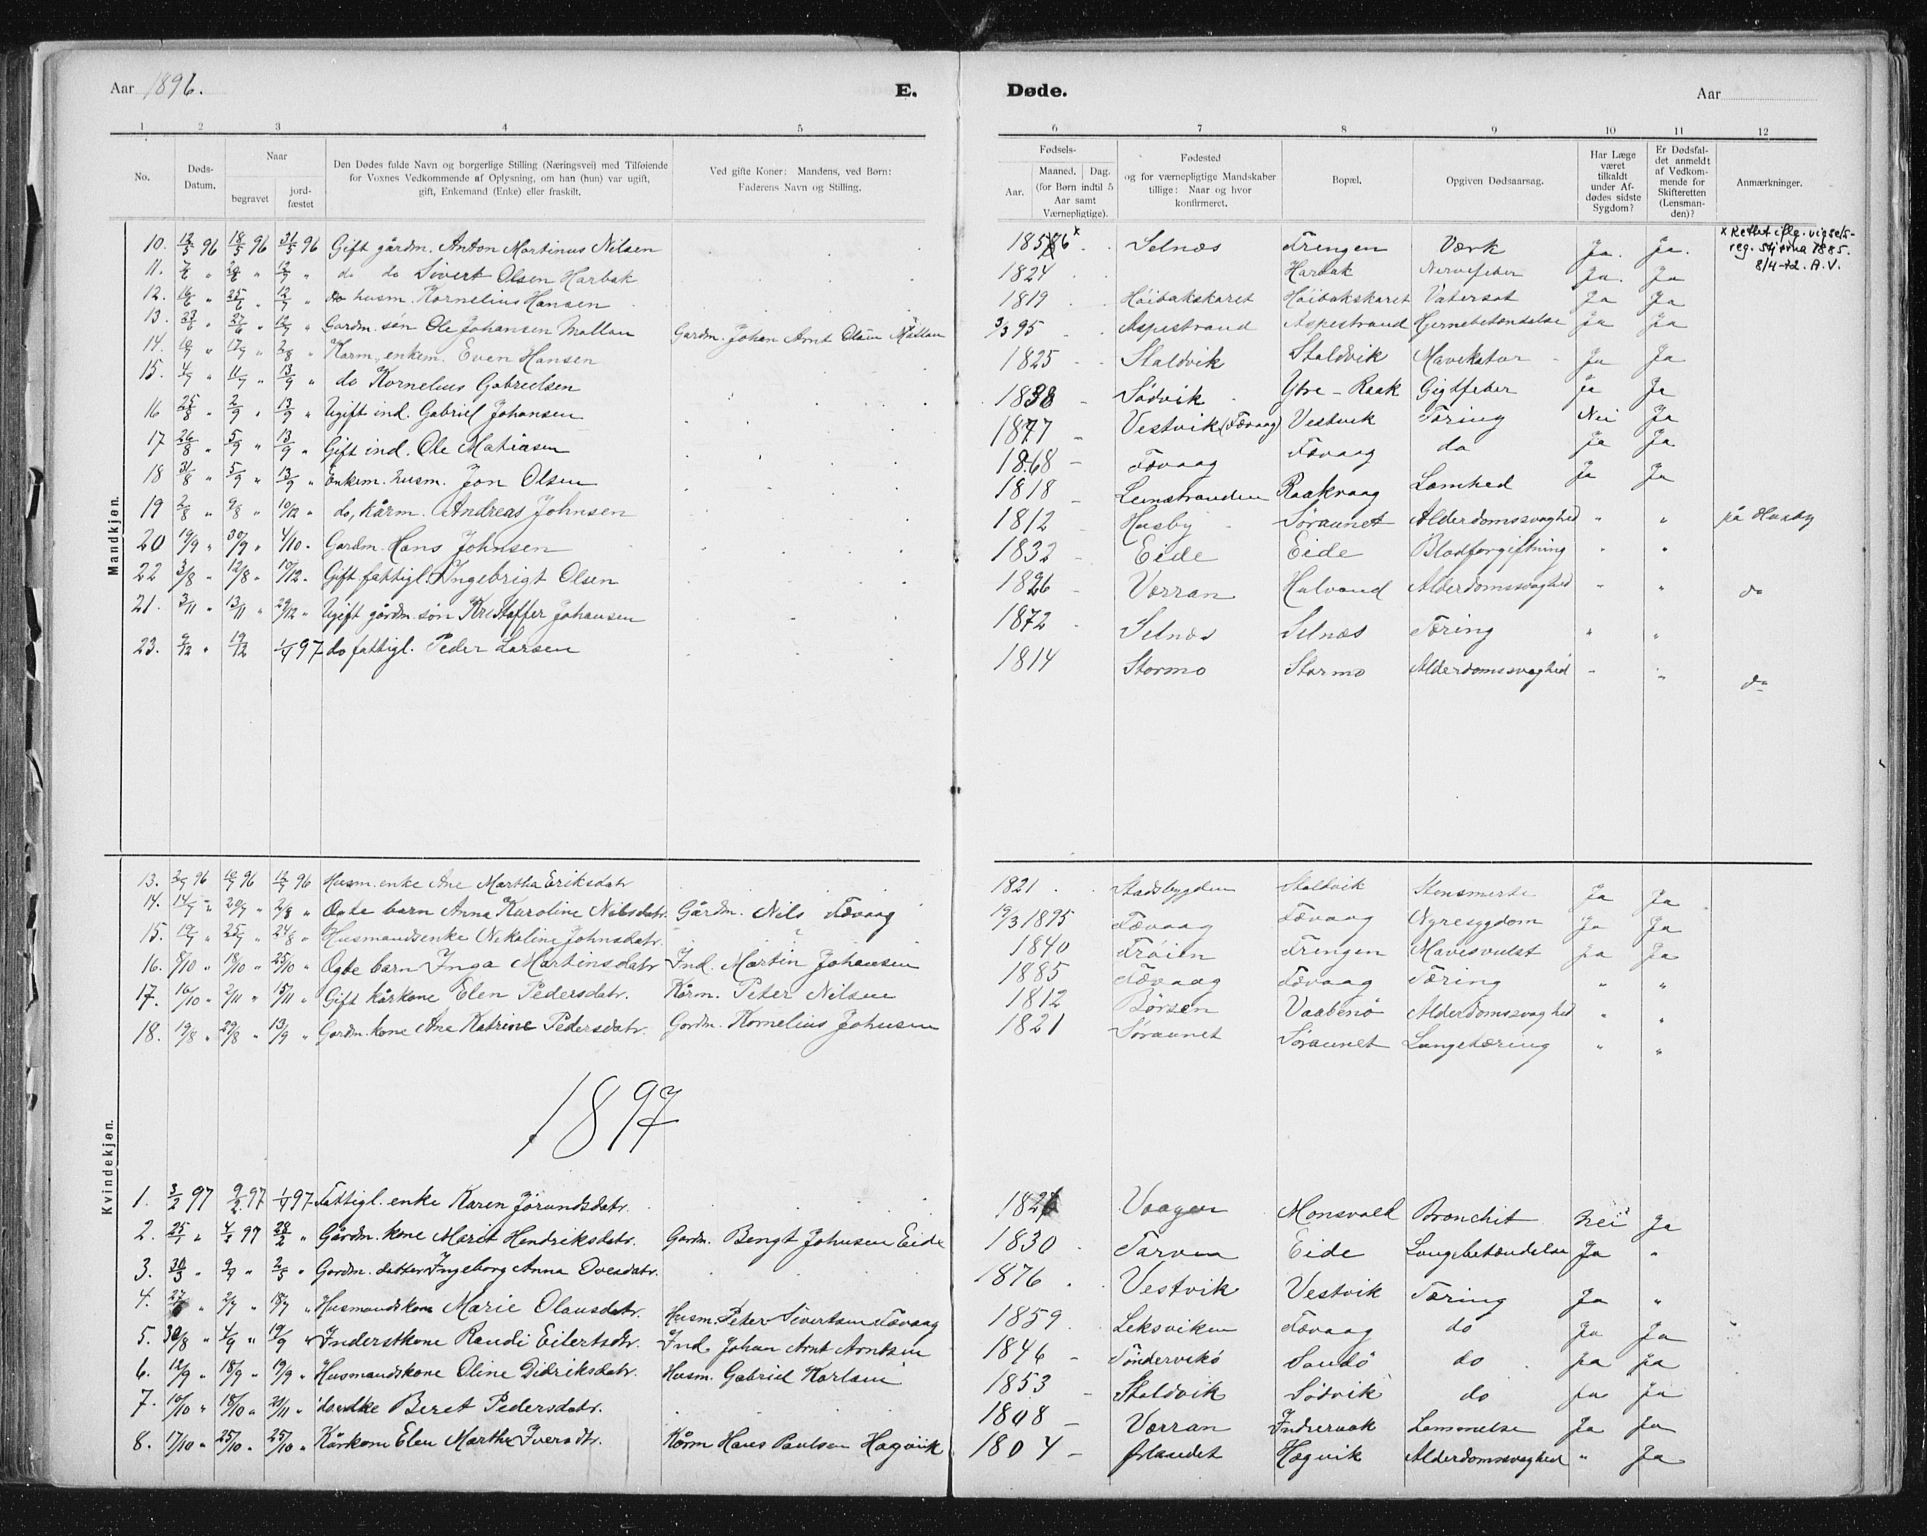 Aar 1896. E. Døde. Aar
1 2 3 4 5 6 7 8 9 10 11 12
No. Døds-Datum. Naar begravet jord-fæstet Den Dødes fulde Navn og borgerlige Stilling (Næringsvei) med Tilføiende for Voxnes Vedkommende af Oplysning, om han (hun) var ugift, gift, Enkemand (Enke) eller fraskilt. Ved gifte Koner: Mandens, ved Børn: Faderens Navn og Stilling. Fødsels- Aar. Maaned. Dag. (for Børn indtil 5 Aar samt Værnepligtige). Fødested og for værnepligtige Mandskaber tillige: Naar og hvor konfirmeret. Bopæl. Opgiven Dødsaarsag. Har Læge været tilkaldt under Afdødes sidste Sygdom? Er Dødsfaldet anmeldt af Vedkommende for Skifteretten (Lensmanden)? Anmærkninger.
Mandkjøn.
10. 12/5 96 18/5 96 31/5 96 Gift gårdm. Anton Martinus Nilsen 1856 x Selnæs Frengen Værk Ja. Ja. x Rettet iflg. vigsels-reg. Stjørna 1885. 8/4-72. A.V.
11. " " " do do Sivert Olsen Harbak 1824 Harbak Nervefeber Ja. Ja
12. 16/6 " 25/6 " 12/7 " do husm. Kornelius Hansen 1819 Høibakskaret Høibakskaret Vatersot Ja Ja
13. 23/6 " 27/6 " 12/7 " Gardm. søn Ole Johansen Mallan Gardm. Johan Arnt Olsen Mallan 3/3 95 Aspestrand Aspestrand Hjernebetændelse Ja Ja
14. " 17/7 " 2/8 " Karm. enkem. Even Hansen 1825 Staldvik Staldvik Mavekatar Ja Ja
15. 4/7 " 11/7 " 13/9 " do Kornelius Gabrielsen 1838 Sødvik Ytre-Raak Gigtfeber Ja Ja
16 25/8 " 2/9 " 13/9 " Ugift ind. Gabriel Johansen 1877 Vestvik (Fævaag) Vestvik Tæring Nei Ja
17 26/8 " 5/9 " 13/9 " Gift ind. Ole Matiasen 1868 Fævaag Fævaag do Ja Ja.
18 31/8 " 5/9 " 13/9 " Enkem. husm. Jon Olsen 1818 Leinstranden Raakvaag Lamhed Ja Ja
19 2/8 " 9/8 " 10/12 " do, kårm. Andreas Johnsen 1812 Husby Søraunet Alderdomssvaghed " " på Husby
20 19/9 " 30/9 " 4/10 " Gardm. Hans Johnsen 1832 Eide Eide Blodforgiftning " "
22 3/8 " 12/8 " 10/12 " Gift fattigl. Ingebrigt Olsen 1826 Værran Halvand Alderdomssvaghed " " do
21. 3/11 " 13/11 " 29/12 " Ugift gårdm. søn Kristoffer Johansen 1872 Selnæs Selnæs Tæring " "
23. 9/12 " 19/12 1/4 97 do fattigl. Peder Larsen 1814 Stormo Stormo Alderdomssvaghed " " do
Kvindekjøn.
13. 2/7 96 10/7 96 12/7 96 Husm. enke Ane Martha Eriksdatr 1821 Stadsbygden Staldvik Stensmerte Ja Ja
14. 14/7 " 20/7 " 2/8 " Ægte barn Anna Karoline Nilsdatr. Gårdm. Nils Fævaag 19/3 1895 Fævaag Fævaag Nyresygdom Ja Ja
15. 19/7 " 25/7 " 24/8 " Husmandsenke Nikoline Johnsdatr. 1840 Frøien Frengen Mavesvulst Ja Ja
16. 8/10 " 18/10 " 25/10 " Ægte barn Inga Martinsdatr Ind. Martin Johansen 1885 Fævaag Fævaag Tæring " "
17. 16/10 " 2/11 " 15/11 " Gift kårkone Elen Pedersdatr. Kårm. Peter Nilsen 1812 Børsen Vaabenø Alderdomssvaghed " "
18. 19/8 " 29/8 " 13/9 " Gardm. kone Ane Katrine Pedersdatr. Gardm. Kornelius Johnsen 1821 Søraunet Søraunet Lungetæring " "
1897
1. 3/2 97 9/2 97 1/4 97 Fattigl. enke Karen Jørundsdatr. Vaagen Monsvold Bronchit Nei Ja
2. 25/1 " 4/2 97 28/2 " Gårdm. kone Marit Hendriksdatr. Gardm. Bengt Johnsen Eide 1830 Tarven Eide Lungebetændelse Ja "
3. 30/3 " 9/4 " 2/5 " Gardm. datter Ingeborg Anna Ovesdatr. 1876 Vestvik Vestvik Tæring Ja "
4. " 2/7 " 18/7 " Husmandskone Marie Olausdatr. Husm. Peter Sivertsen Fævaag 1859 Leksviken Fævaag do Ja Ja
5. 30/8 " 4/9 " 19/9 " Inderstkone Randi Eilertsdtr. Ind. Johan Arnt Arntsen 1846 Tøndervikø Sandø do Ja Ja
6. 12/9 " 18/9 " 19/9 " Husmandskone Oline Didriksdatr. Husm. Gabriel Karlsen 1853 Staldvik Sødvik do Ja Ja
7. 10/10 " 18/10 " 21/11 " do enke Beret Pedersdatr. 1808 Værran Indervak Lammelse Ja Ja
8. 17/10 " 25/10 " 25/10 " Kårkone Elen Marthe Iversdtr. Kårm Hans Paulsen Hagvik 1804 Ørlandet Hagvik Alderdomssvaghed " Ja